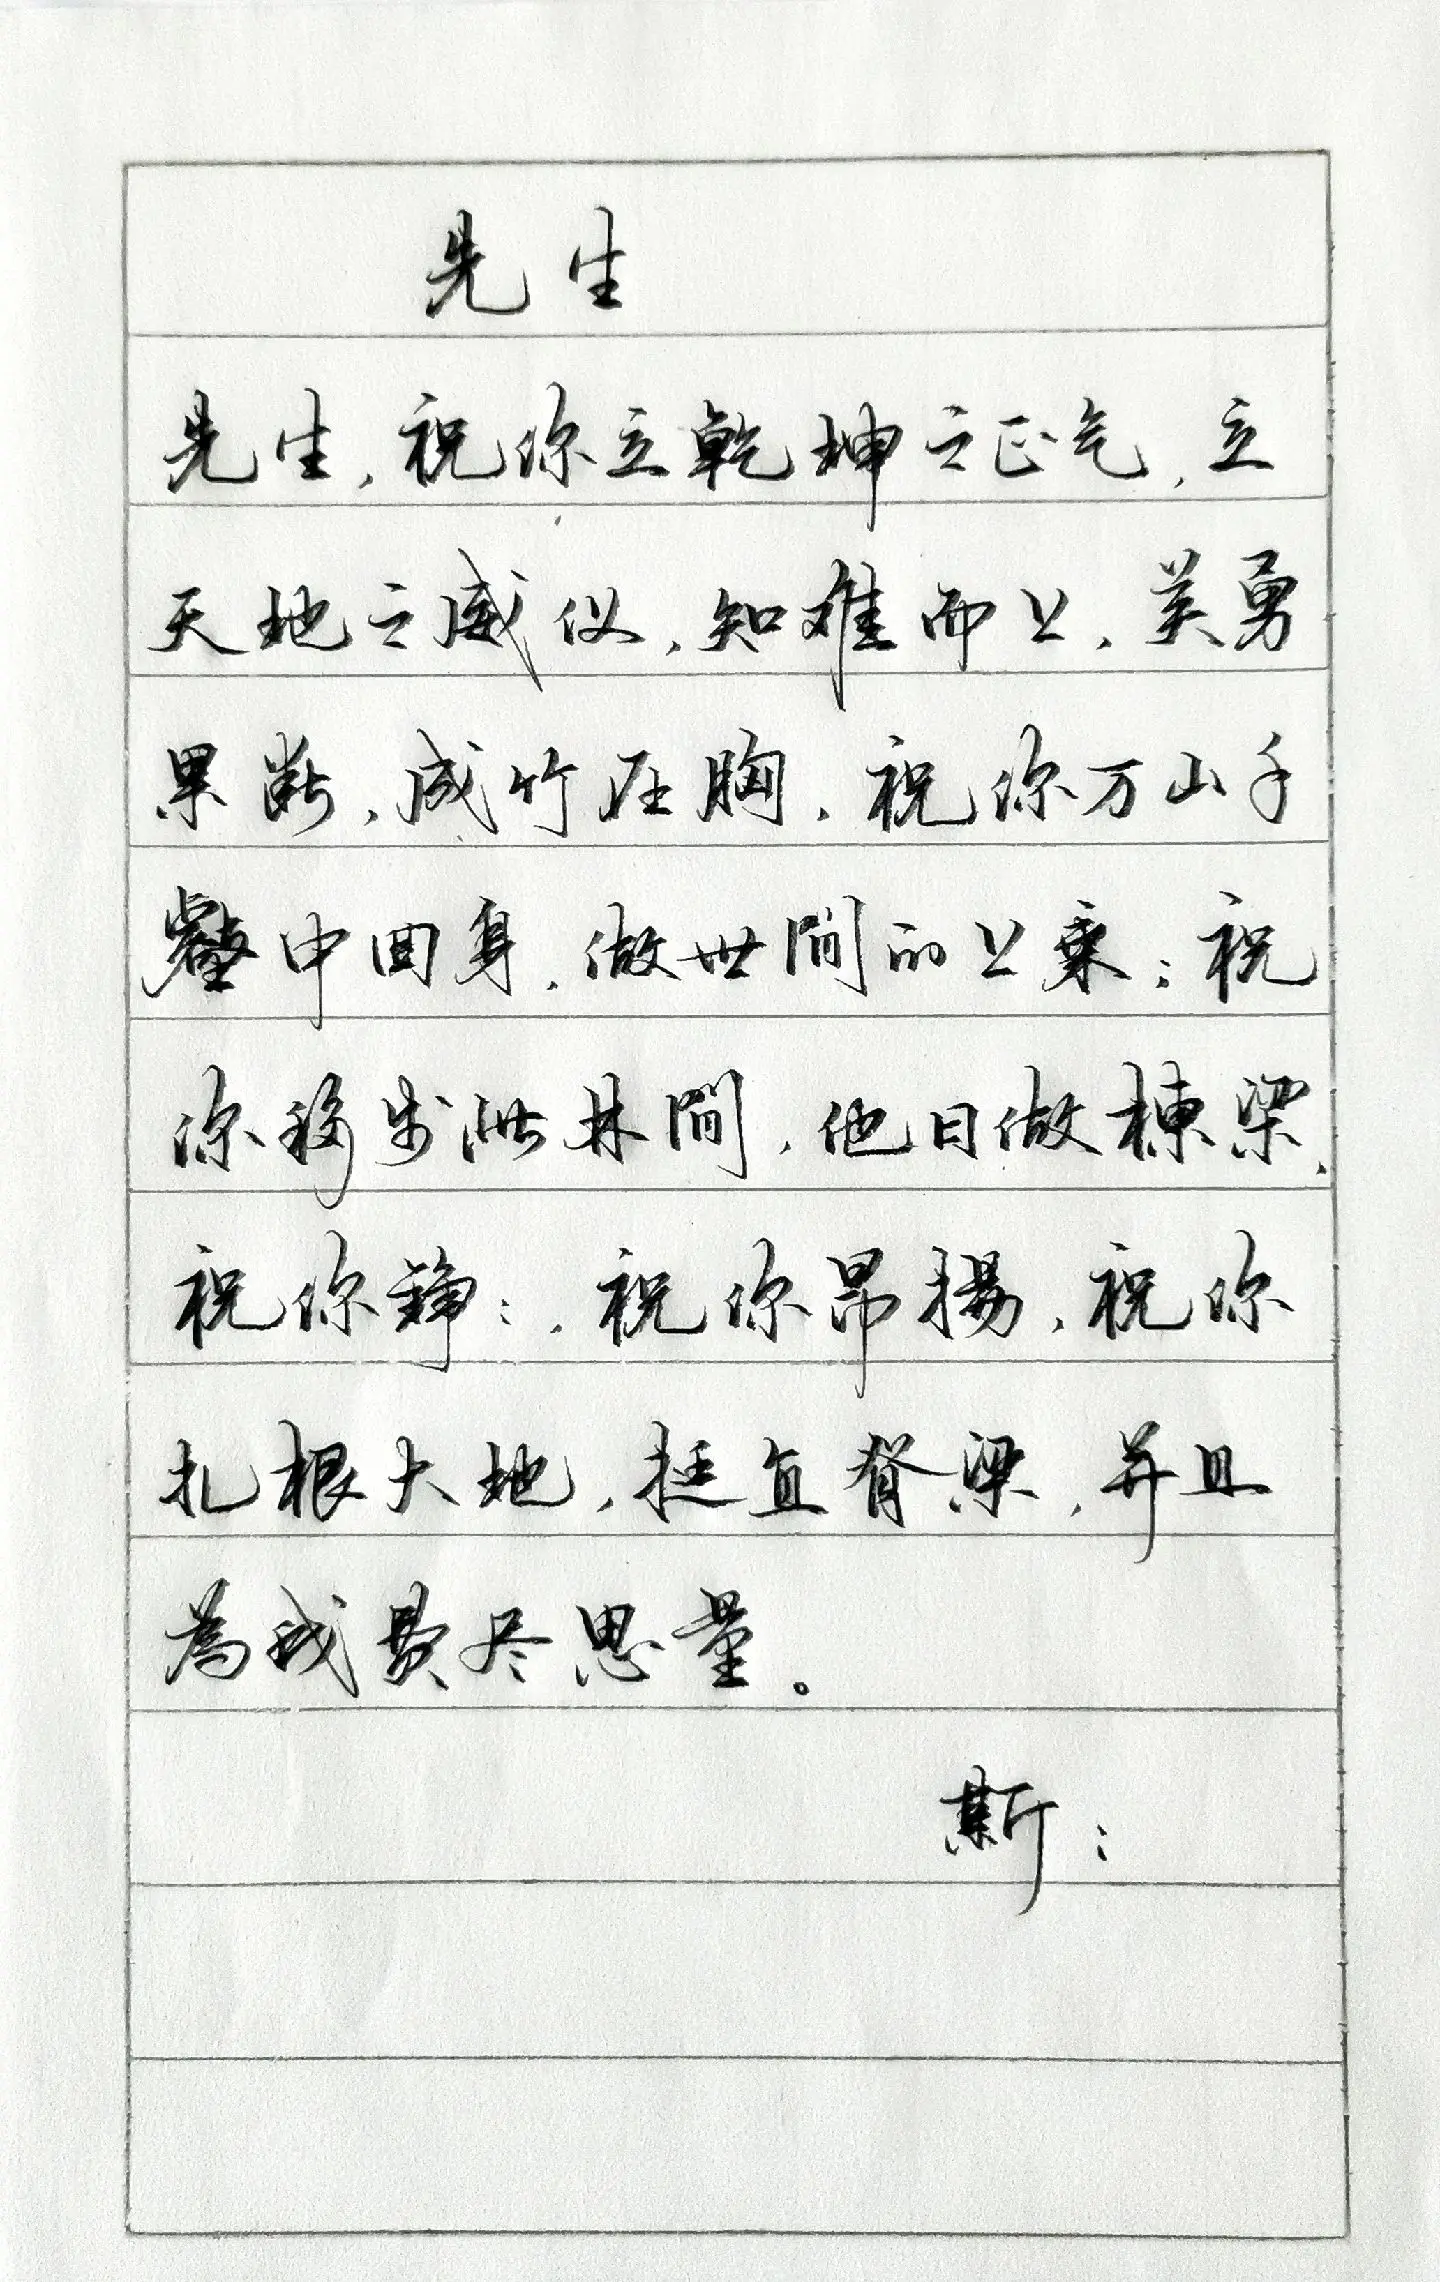 先生
先生，祝你立乾坤之正气，立
天地之威仪，知难而上，英勇
果断，成竹在胸，祝你万山千
壑中回身，做世間的上乘；祝
你移步此林間，他日做棟梁，
祝你錚：，祝你昂揚，祝你
扎根大地，挺直脊梁，并且
為我费尽思量。
斯：